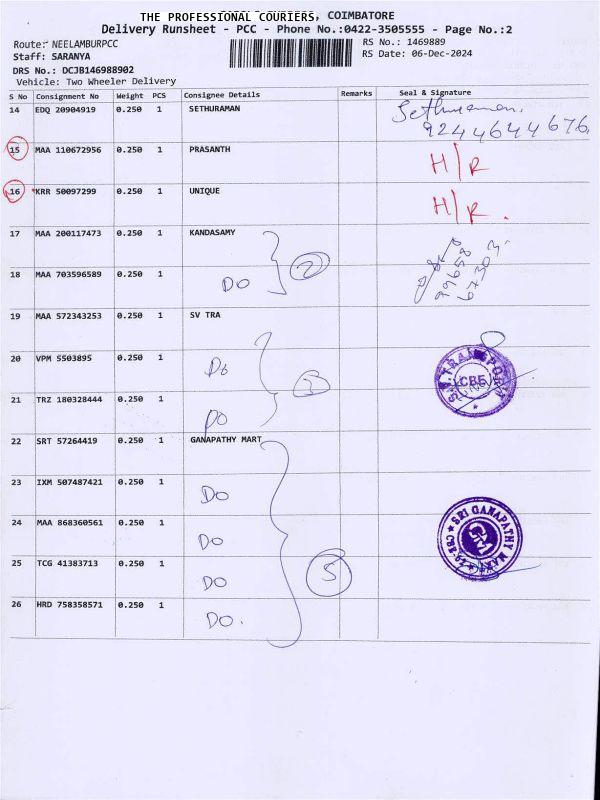 THE PROFESSIONAL COURIERS, COIMBATORE
Delivery Runsheet - PCC - Phone No.:0422-3505555 - Page No.:2
Route: NEELAMBURPCC RS No.: 1469889
Staff: SARANYA RS Date: 06-Dec-2024
DRS No.: DCJB146988902
Vehicle: Two Wheeler Delivery
S No Consignment No Weight PCS Consignee Details Remarks Seal & Signature
14 EDQ 20904919 0.250 1 SETHURAMAN Sethuraman.
9244644676
15 MAA 110672956 0.250 1 PRASANTH H/R
16 KRR 50097299 0.250 1 UNIQUE H/R.
17 MAA 200117473 0.250 1 KANDASAMY
2
18 MAA 703596589 0.250 1 DO
19 MAA 572343253 0.250 1 SV TRA
20 VPM 5503895 0.250 1 Do
3 CBE
21 TRZ 180328444 0.250 1 DO
22 SRT 57264419 0.250 1 GANAPATHY MART
23 IXM 507487421 0.250 1 DO
24 MAA 868360561 0.250 1 DO SRI GANAPATHY MART
25 TCG 41383713 0.250 1 DO 5
26 HRD 758358571 0.250 1 DO.